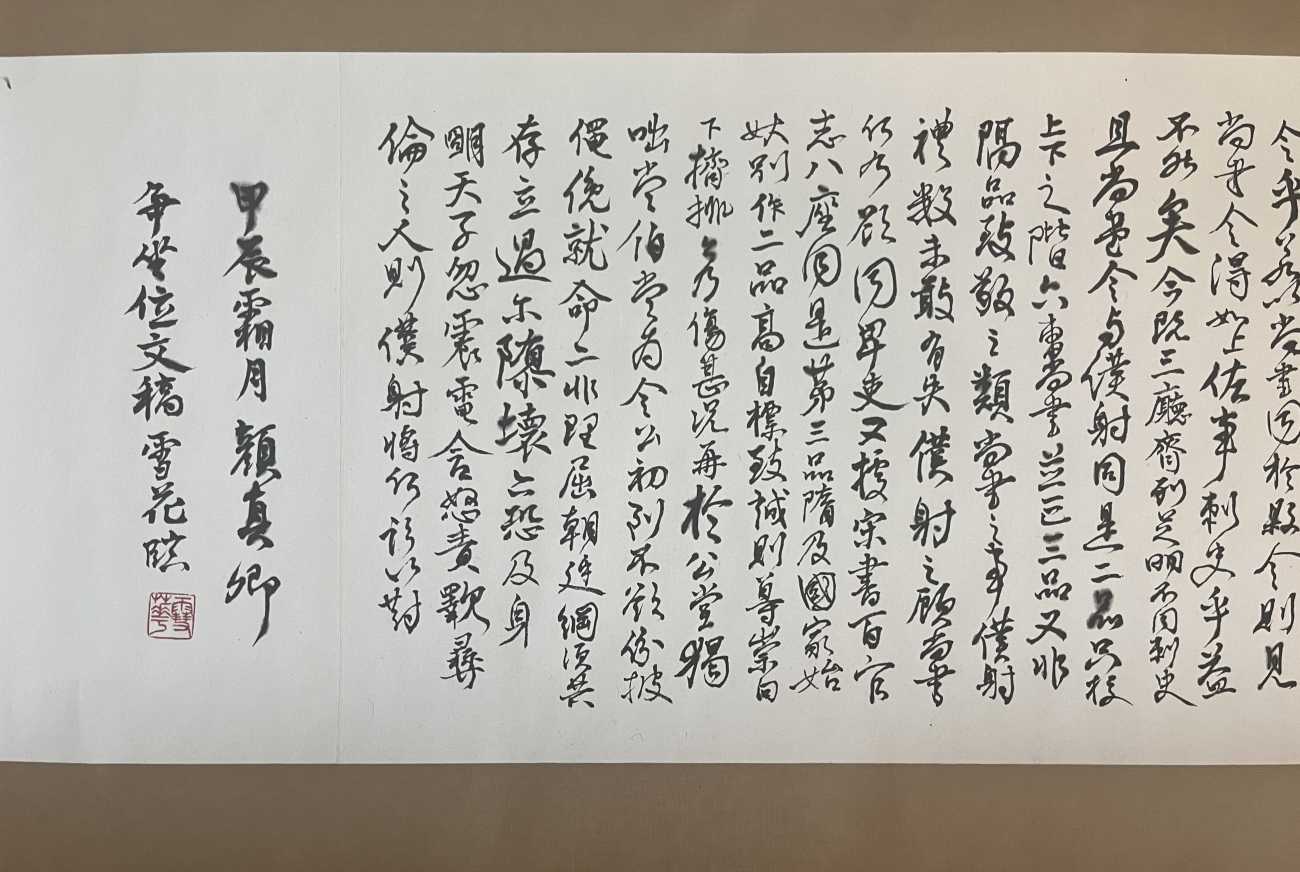 今乎若以尚書同於縣令則見
尚書令得如上佐事刺史乎益
不然矣今既三廳齊列足明不同刺史
且尚書令與僕射同是二品只校
上下之階六曹尚書並正三品又非
隔品致敬之類尚書之事僕射
禮數未敢有失僕射之顧尚書
何乃欲同卑吏又據宋書百官
志八座同是第三品隋及國家始
別作二品高自標致誠則尊崇向
下擠排乃傷甚況再於公堂猲
咄常伯當為令公初到不欲紛披
僶俛就命亦非理屈朝廷綱須共
存立過爾隳壞亦恐及身
明天子忽震電含怒責斁彝
倫之人則僕射將何辭以對
甲辰霜月 顏真卿
爭坐位文稿 雪花臨
雪華